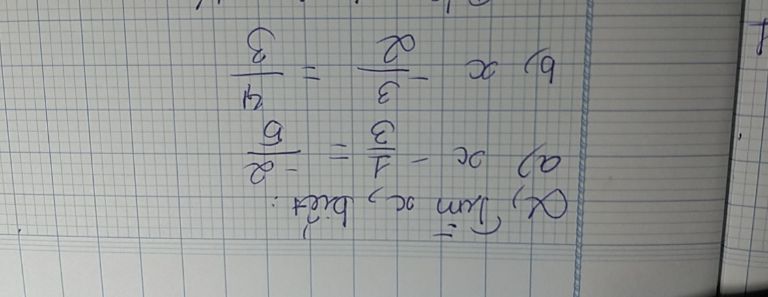 2, Tìm x, biết:
a) x - 1/3 = -2/5
b) x - 3/2 = 4/3